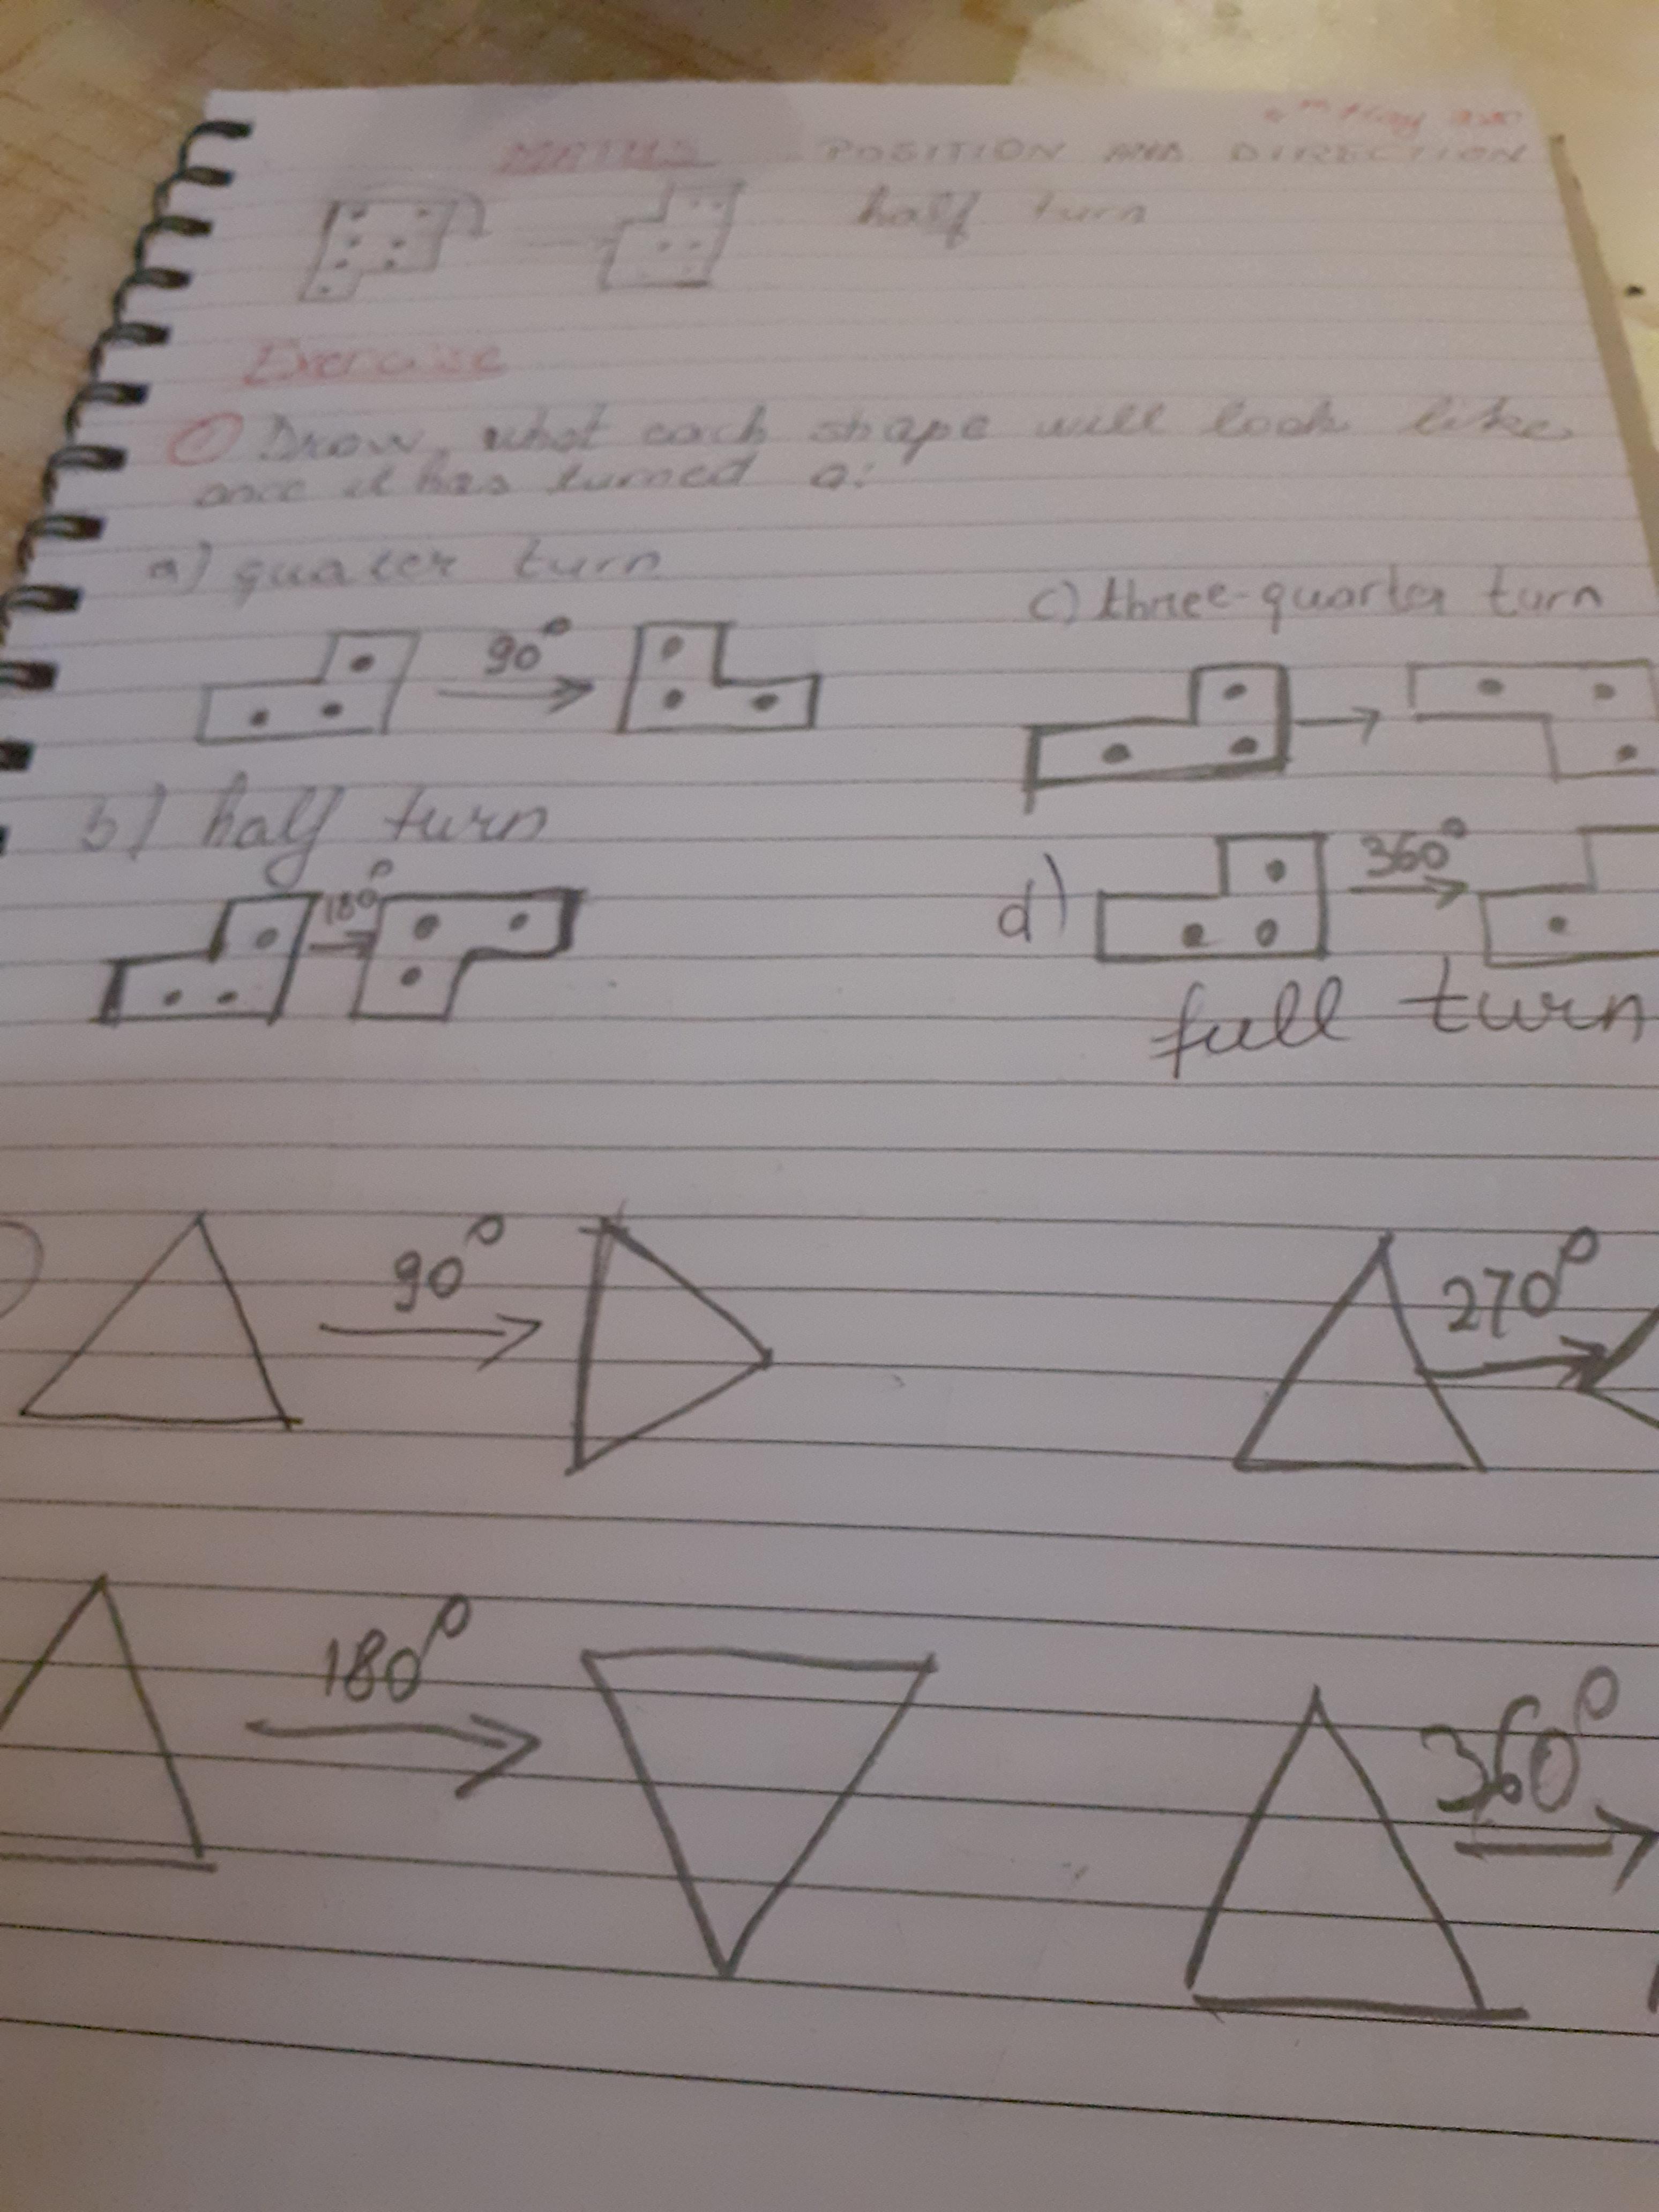 May
MATHS POSITION AND DIRECTION
half turn
Exercise
① Draw what each shape will look like
once it has turned a:
a) quater turn
c) three-quarter turn
90°
b) half turn
180°
d) 360°
full turn
90°
270°
180°
360°